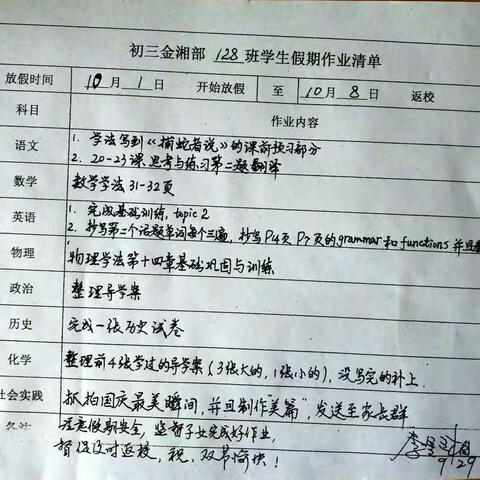 初三金湘部 128 班学生假期作业清单
放假时间 10月 1 日 开始放假 至 10月 8 日 返校
科目 作业内容
语文 1. 学法写到《捕蛇者说》的课前预习部分
2. 20-23课思考与练习第二题翻译
数学 数学学法31-32页
英语 1. 完成基础训练, topic 2
2. 抄写第二个话题单词每个三遍, 抄写P14页 P7页的grammar和functions 并且
物理 物理学法第十四章基础巩固与训练
政治 整理导学案
历史 完成一张历史试卷
化学 整理前4张学过的导学案(3张大的, 1张小的), 没写完的补上.
社会实践 抓拍国庆最美瞬间, 并且制作"美篇", 发送至家长群
备注 注意假期安全, 监督子女完成好作业,
督促及时返校, 祝: 双节愉快!
9/29